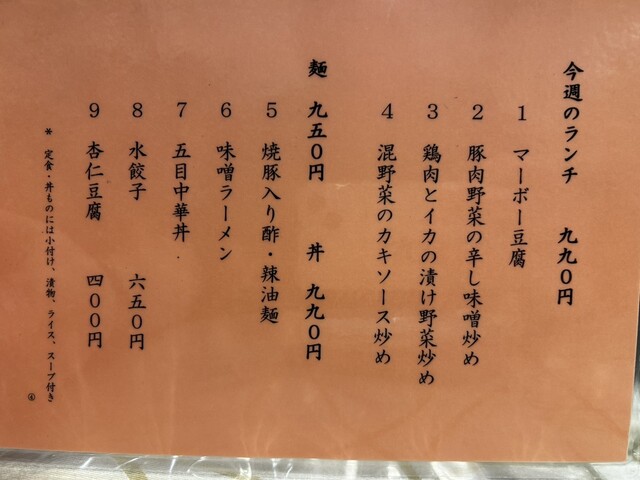 今週のランチ　九九０円
1　マーボー豆腐
2　豚肉野菜の辛し味噌炒め
3　鶏肉とイカの漬け野菜炒め
4　混野菜のカキソース炒め
麺　九五０円　　丼　九九０円
5　焼豚入り酢・辣油麺
6　味噌ラーメン
7　五目中華丼
8　水餃子　六五０円
9　杏仁豆腐　四００円
* 定食・丼ものには小付け、漬物、ライス、スープ付き
④